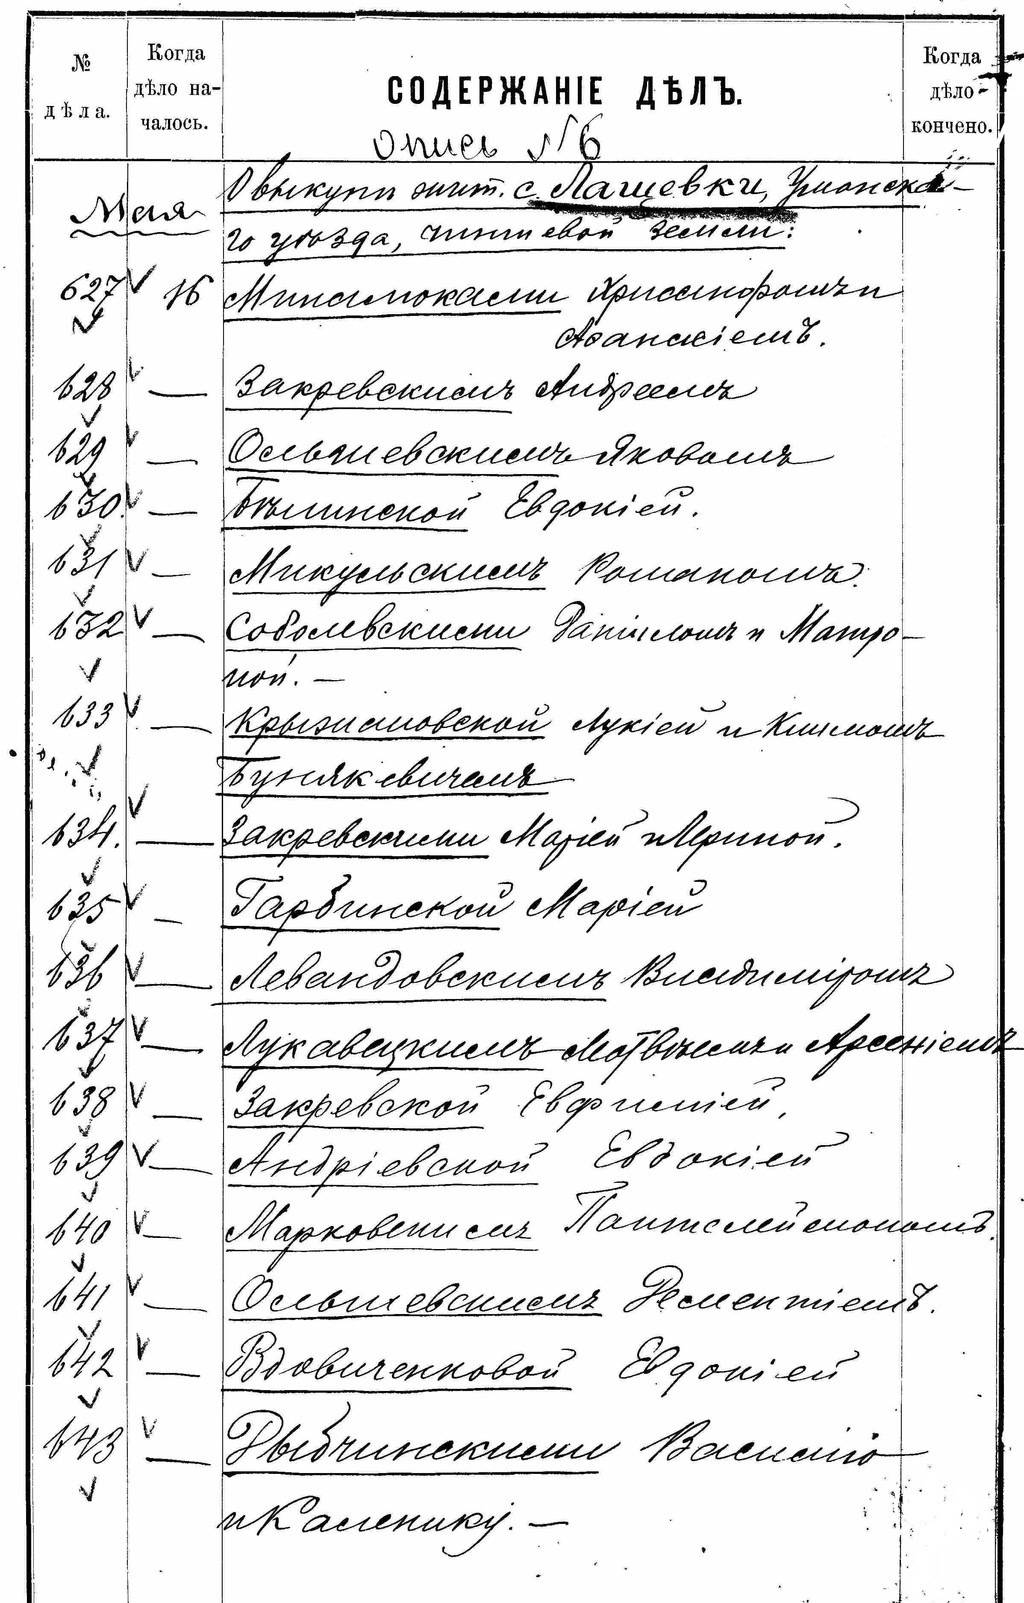 № дѣла.
Когда дѣло началось.
СОДЕРЖАНІЕ ДѢЛЪ.
Когда дѣло кончено.
Опись №6
О выкупѣ жит. с. Лащевки, Уманска-
Мая
го уѣзда, чиншевой земли:
627 16 Хрисанфомъ и
Афанасіемъ.
628 — Закревскимъ Андреемъ
629 — Ольшевскимъ Яковомъ
630 — Бѣлинской Евдокіей.
631 — Микульскимъ Романомъ.
632 — Соболевскими Даніиломъ и Матро-
ной. —
633 — Крыжановской Лукіей и Климомъ
Бунякевичемъ
634. — Закревскими Маріей и Ириной.
635 — Гарбинской Маріей
636 — Левандовскимъ Владиміромъ
637 — Лукавецкимъ Матвѣемъ и Арсеніемъ
638 — Закревской Евфиміей,
639 — Андріевской Евдокіей
640 — Марковскимъ Пантелеймономъ.
641 — Ольшевскимъ Дементіемъ.
642 — Вдовиченковой Евдокіей
643 — Рыбчинскими Василію
и Каленику. —